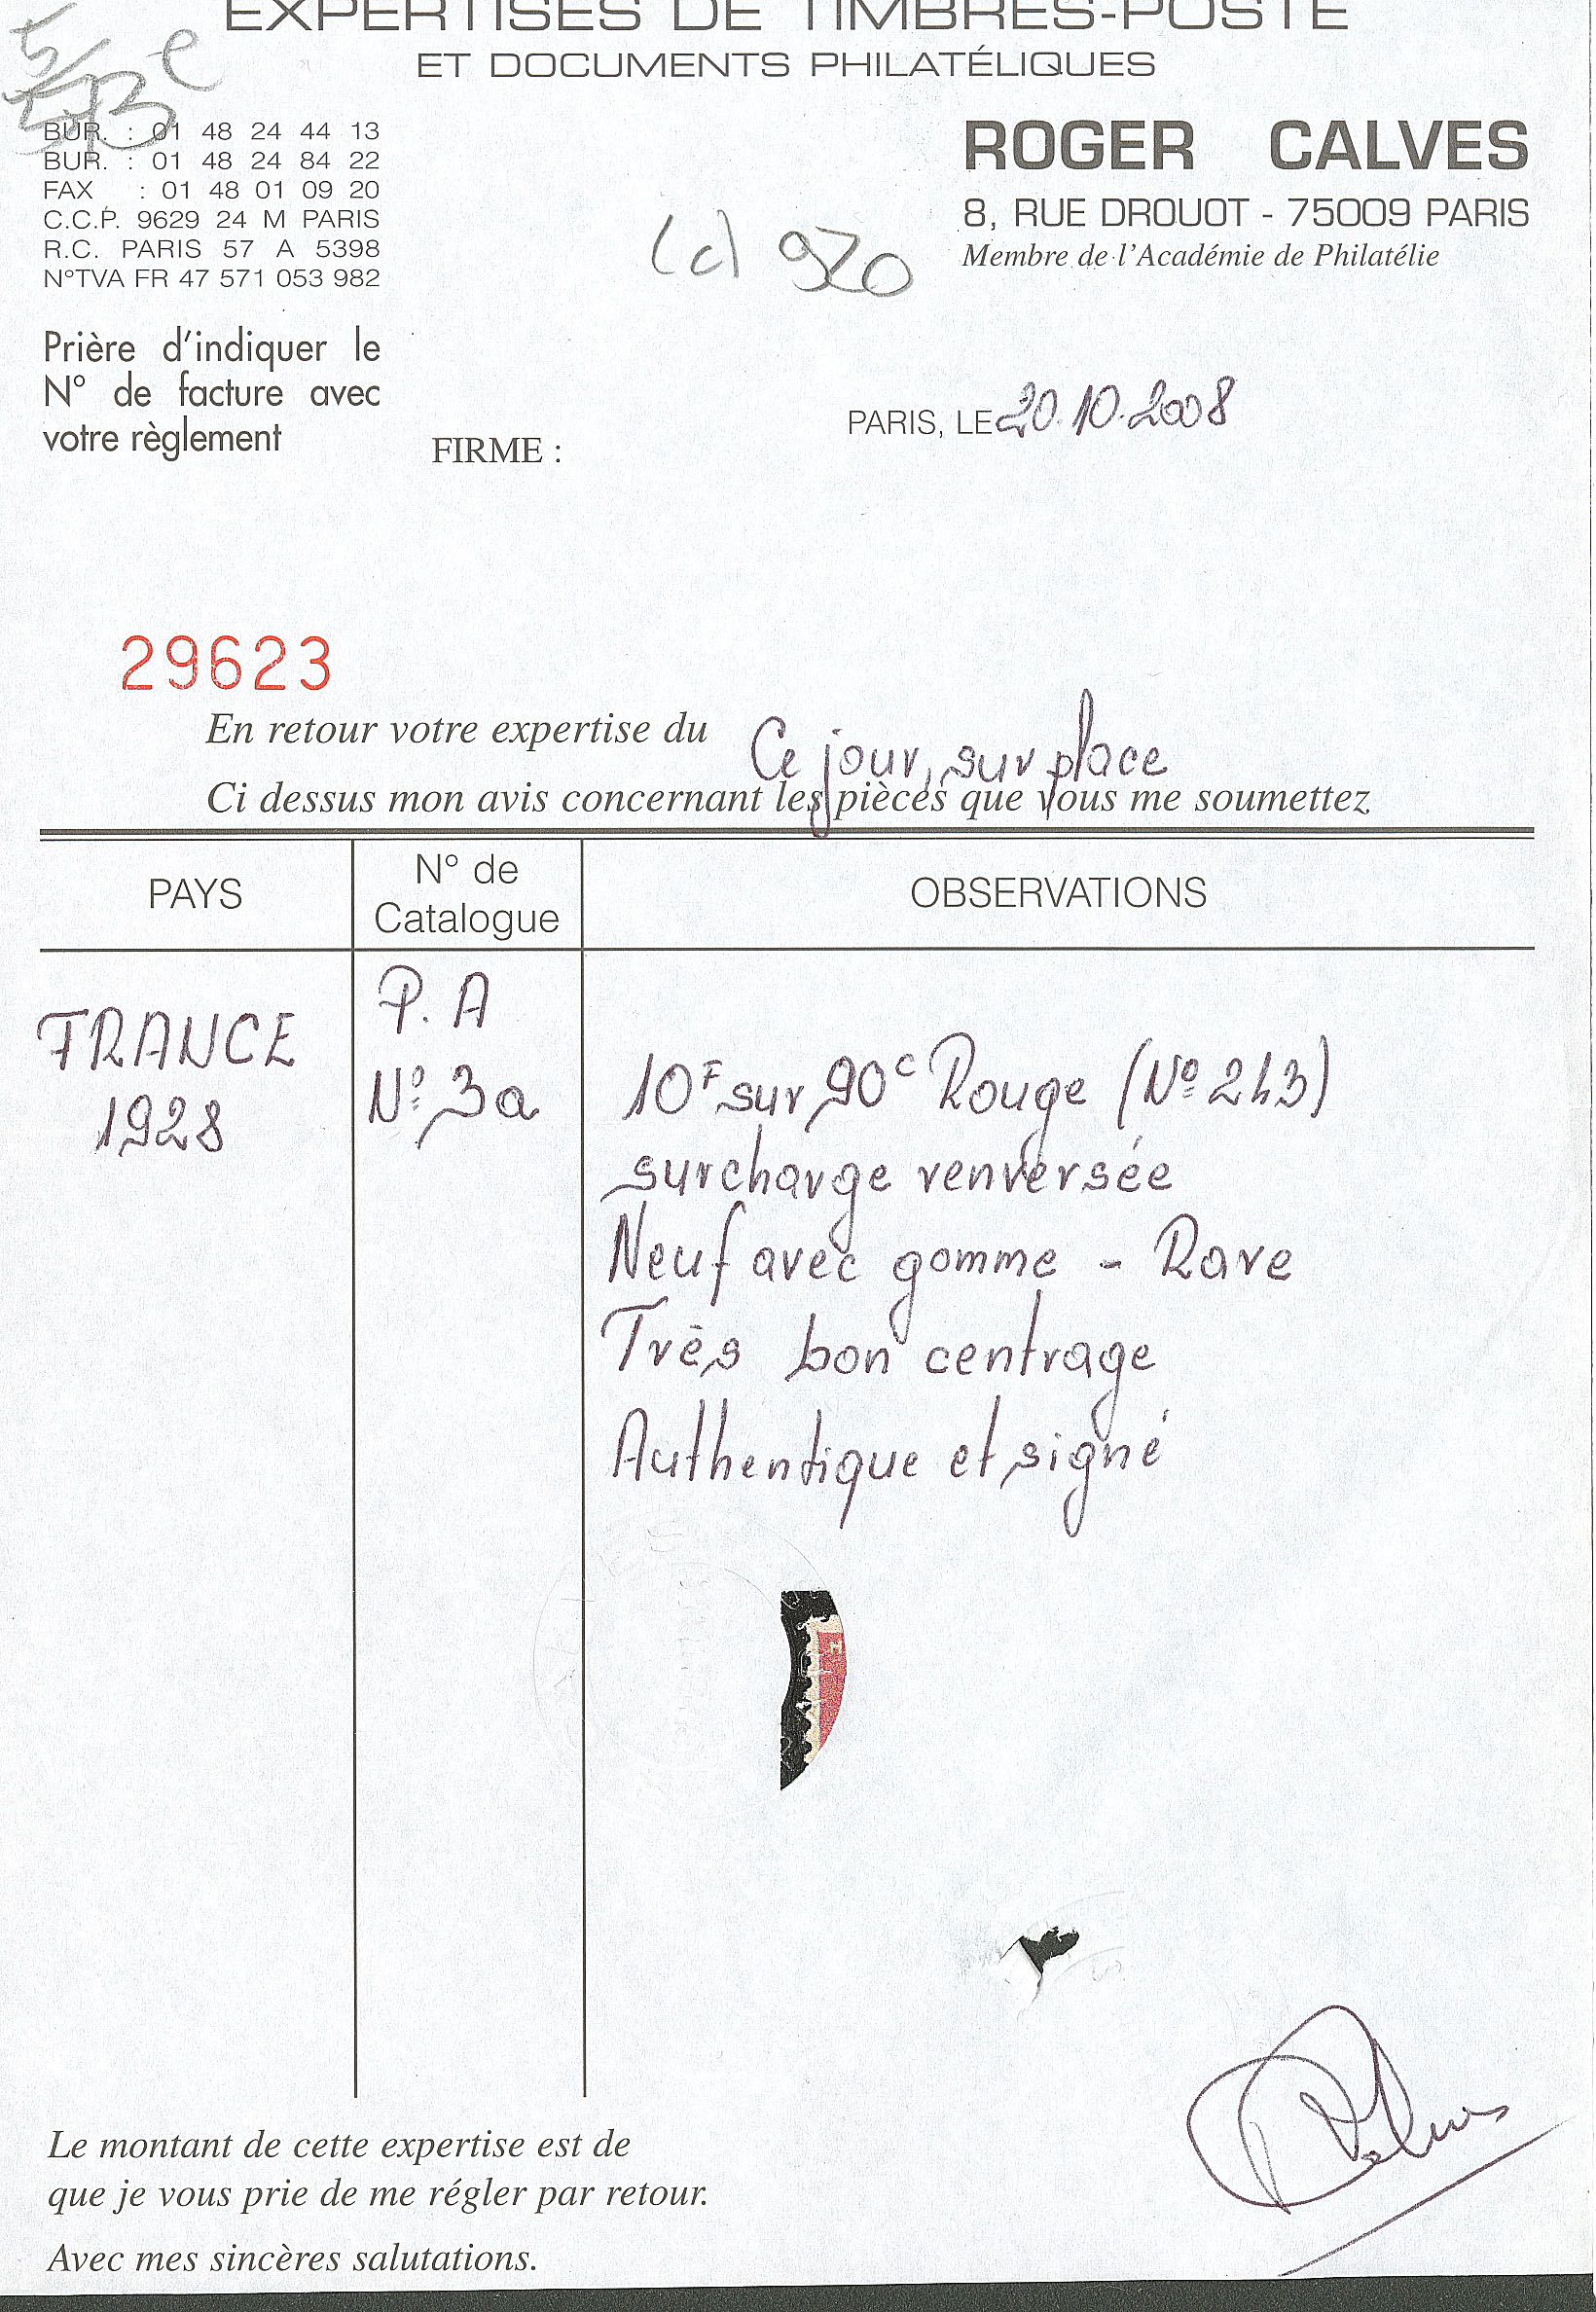 EXPERTISES DE TIMBRES-POSTE
ET DOCUMENTS PHILATÉLIQUES
BUR. : 01 48 24 44 13
BUR. : 01 48 24 84 22
FAX : 01 48 01 09 20
C.C.P. 9629 24 M PARIS
R.C. PARIS 57 A 5398
N°TVA FR 47 571 053 982
ROGER CALVES
8, RUE DROUOT - 75009 PARIS
Membre de l'Académie de Philatélie
(c) 920
Prière d'indiquer le
N° de facture avec
votre règlement
FIRME :
PARIS, LE 20.10.2008
29623
En retour votre expertise du Ce jour, sur place
Ci dessus mon avis concernant les pièces que vous me soumettez
PAYS
N° de
Catalogue
OBSERVATIONS
FRANCE
1928
P. A
N° 3a
10F sur 90c Rouge (N° 243)
surcharge renversée
Neuf avec gomme - Rare
Très bon centrage
Authentique et signé
Calves
Le montant de cette expertise est de
que je vous prie de me régler par retour.
Avec mes sincères salutations.